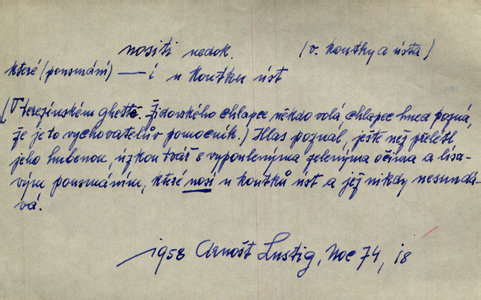 nositi nedok. (v. koutky a ústa)
které (pousmání) — í u koutků úst
(V terezínském ghettě. Židovského chlapce někdo volá chlapec hned pozná,
že je to vychovatelův pomocník.) Hlas poznal, ještě než přelétl
jeho hubenou, úzkou tvář s vypoulenýma zelenýma očima a lísa-
vým pousmáním, které nosí u koutků úst a jež nikdy nesundá-
vá.
1958 Arnošt Lustig, Noc 74, i8